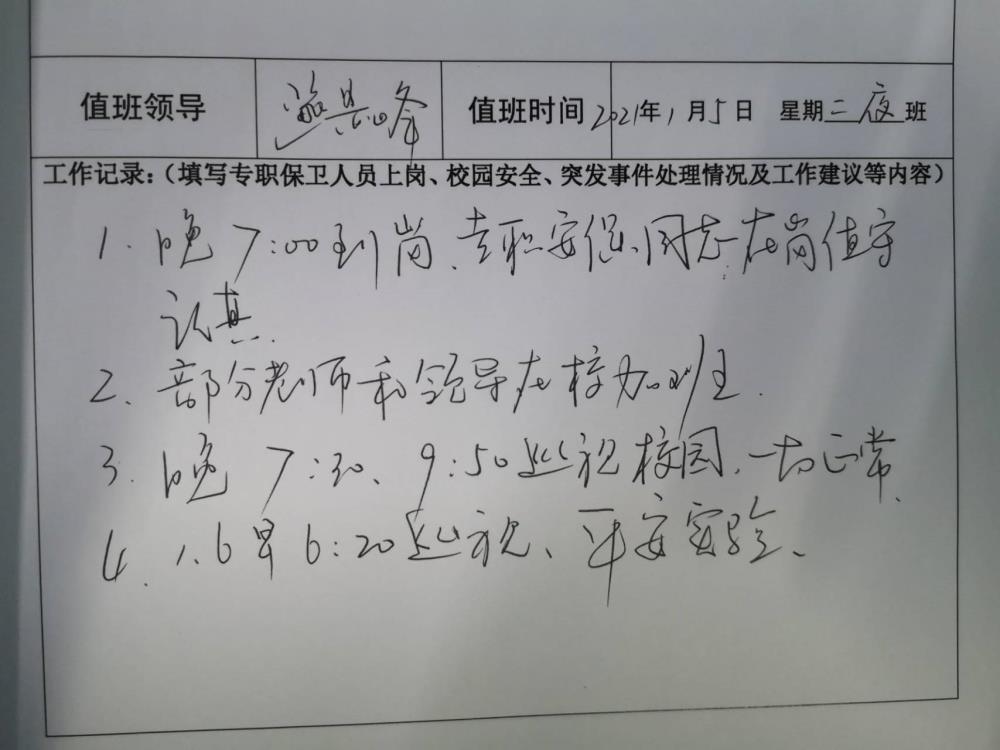 值班领导 值班时间 2021年1月5日 星期二夜班
工作记录:(填写专职保卫人员上岗、校园安全、突发事件处理情况及工作建议等内容)
1. 晚7:00到岗、专职安保同志在岗值守
认真.
2、部分老师和领导在校加班.
3. 晚7:30、9:50巡视校园,一切正常.
4. 1.6早6:20巡视、平安实验、